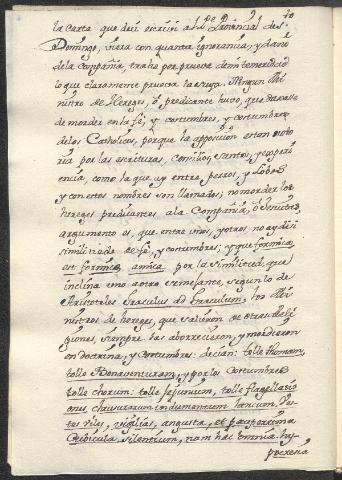 la Carta que dezi escrivi al Pe Provincial de sto
Domingo, viera con quanta ignorancia, y daño
de la Compañia, trahe por prueva de mi temeridad
lo que claramente prueva la suya. Ningun Mi-
nistro de Hereges, ò predicante huvo, que dexasse
de morder en la fè, y costumbres, y costumbres
de los Catholicos, porque la opposicion es tan noto
ria por las escrituras, Concilios, Santos, y experi
encia, como la que ay entre perros, y Lobos
y con estos nombres son llamados; no morder los
hereges predicantes a la Compañia, ò Jesuitas,
argumento es, que entre unos, y otros no ay disi
similitud de fè, y costumbres; y que formica
est formicæ amica por la similitud, que
inclina uno a otro semejante, segun lo de
Aristoteles Graculus ad Graculum, los Mi-
nistros de hereges, que salieron de otras Reli-
giones, siempre las aborrecieron, y mordieron
en doctrina, y costumbres: decian: tolle thomam,
tolle Bonaventuram, y por las costumbres
tolle chorum: tolle jejunium, tolle flagellati-
ones clausuram indumentum laneum, ves-
tes viles, vigilias, angusta, et pauperrima
cubicula silentium, nam hæc omnia hy-
pocresia